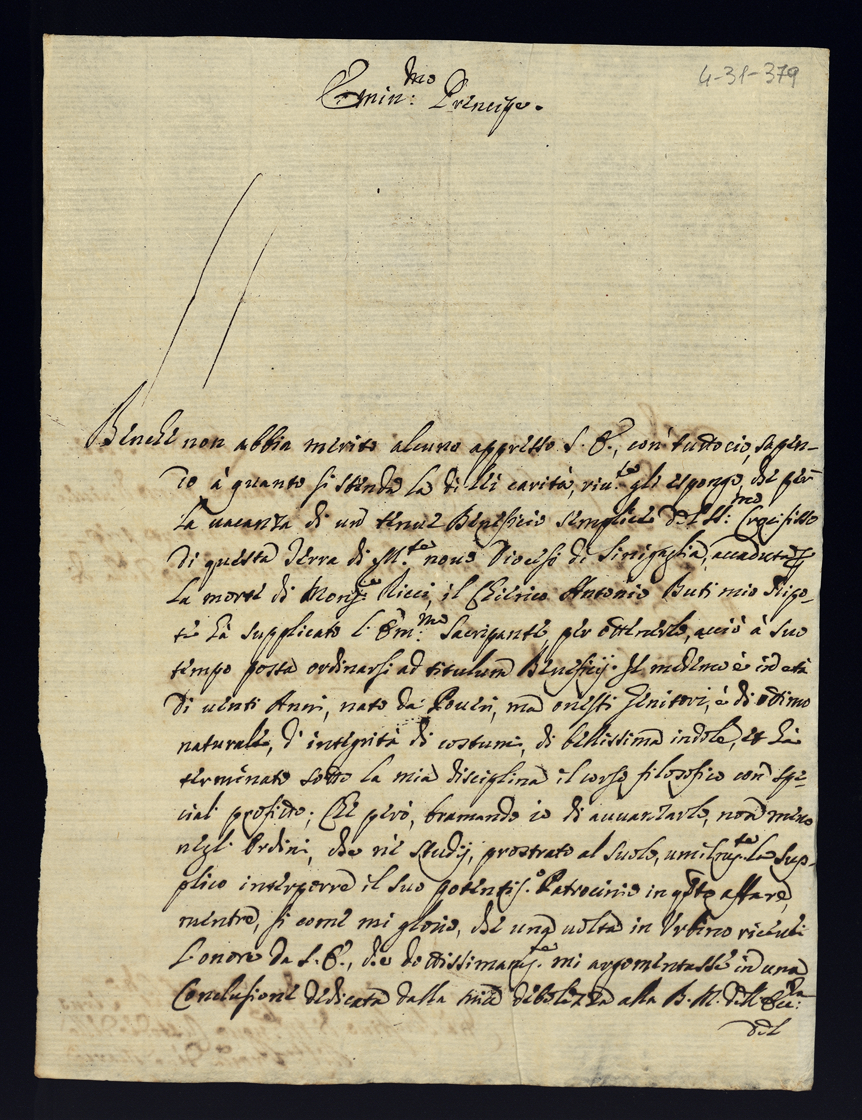 4-31-379
Emin:mo Principe.
Benche non abbia merito alcuno appresso S. E., con tutto ciò, sapen-
do à quanto si stenda la di lei carità, riu.te gli espongo, che per
la vacanza di un tenue Beneficio semplice del SS:mo Crocifisso
di questa Terra di M.te novo Diocesi di Sinigaglia, accaduta p
la morte di Mons.re Ricci, il Chierico Antonio Buti mio Nipo-
te hà supplicato l'Em:mo Sacripante per ottenerlo, acciò à suo
tempo possa ordinarsi ad titulum Beneficij. Il medemo è in età
di venti Anni, nato da Poveri, mà onesti Genitori, è di ottimo
naturale, d'integrità di costumi, di bellissima indole, et hà
terminato sotto la mia disciplina il corso filosofico con spe-
cial profitto; Che però, bramando io di avvanzarlo, non meno
negl'Ordini, che nè Studij, prostrato al suolo, umilm.te la sup-
plico interporre il suo potentis.o Patrocinio in qsto affare,
mentre, si come mi glorio, che una volta in Urbino ricevei
l'onore da S. E., che dottissimam.te mi argomentasse in una
Conclusione dedicata dalla mia debolezza alla B. M. dell'
del